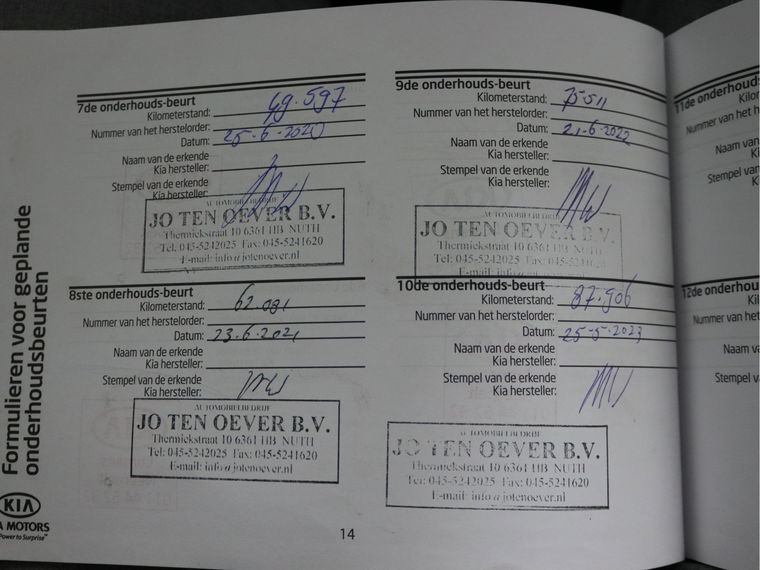 Formulieren voor geplande
onderhoudsbeurten
KIA
MOTORS
Power to Surprise™
7de onderhouds-beurt
Kilometerstand: 49.597
Nummer van het herstelorder:
Datum: 25-6-2020
Naam van de erkende
Kia hersteller:
Stempel van de erkende
Kia hersteller:
AUTOMOBIELBEDRIJF
JO TEN OEVER B.V.
Thermiekstraat 10 6361 HB NUTH
Tel: 045-5242025 Fax: 045-5241620
E-mail: info@jotenoever.nl
8ste onderhouds-beurt
Kilometerstand: 62.081
Nummer van het herstelorder:
Datum: 23.6.2021
Naam van de erkende
Kia hersteller:
Stempel van de erkende
Kia hersteller:
AUTOMOBIELBEDRIJF
JO TEN OEVER B.V.
Thermiekstraat 10 6361 HB NUTH
Tel: 045-5242025 Fax: 045-5241620
E-mail: info@jotenoever.nl
9de onderhouds-beurt
Kilometerstand: 75511
Nummer van het herstelorder:
Datum: 21.6.2022
Naam van de erkende
Kia hersteller:
Stempel van de erkende
Kia hersteller:
AUTOMOBIELBEDRIJF
JO TEN OEVER B.V.
Thermiekstraat 10 6361 HB NUTH
Tel: 045-5242025 Fax: 045-5241620
E-mail: info@jotenoever.nl
10de onderhouds-beurt
Kilometerstand: 87.906
Nummer van het herstelorder:
Datum: 25-5-2023
Naam van de erkende
Kia hersteller:
Stempel van de erkende
Kia hersteller:
AUTOMOBIELBEDRIJF
JO TEN OEVER B.V.
Thermiekstraat 10 6361 HB NUTH
Tel: 045-5242025 Fax: 045-5241620
E-mail: info@jotenoever.nl
14
11de onderhoud
Kilo
Nummer van het h
Naam van
Ki
Stempel va
Ki
12de onderhou
Ki
Nummer van het
Naam va
K
Stempel v